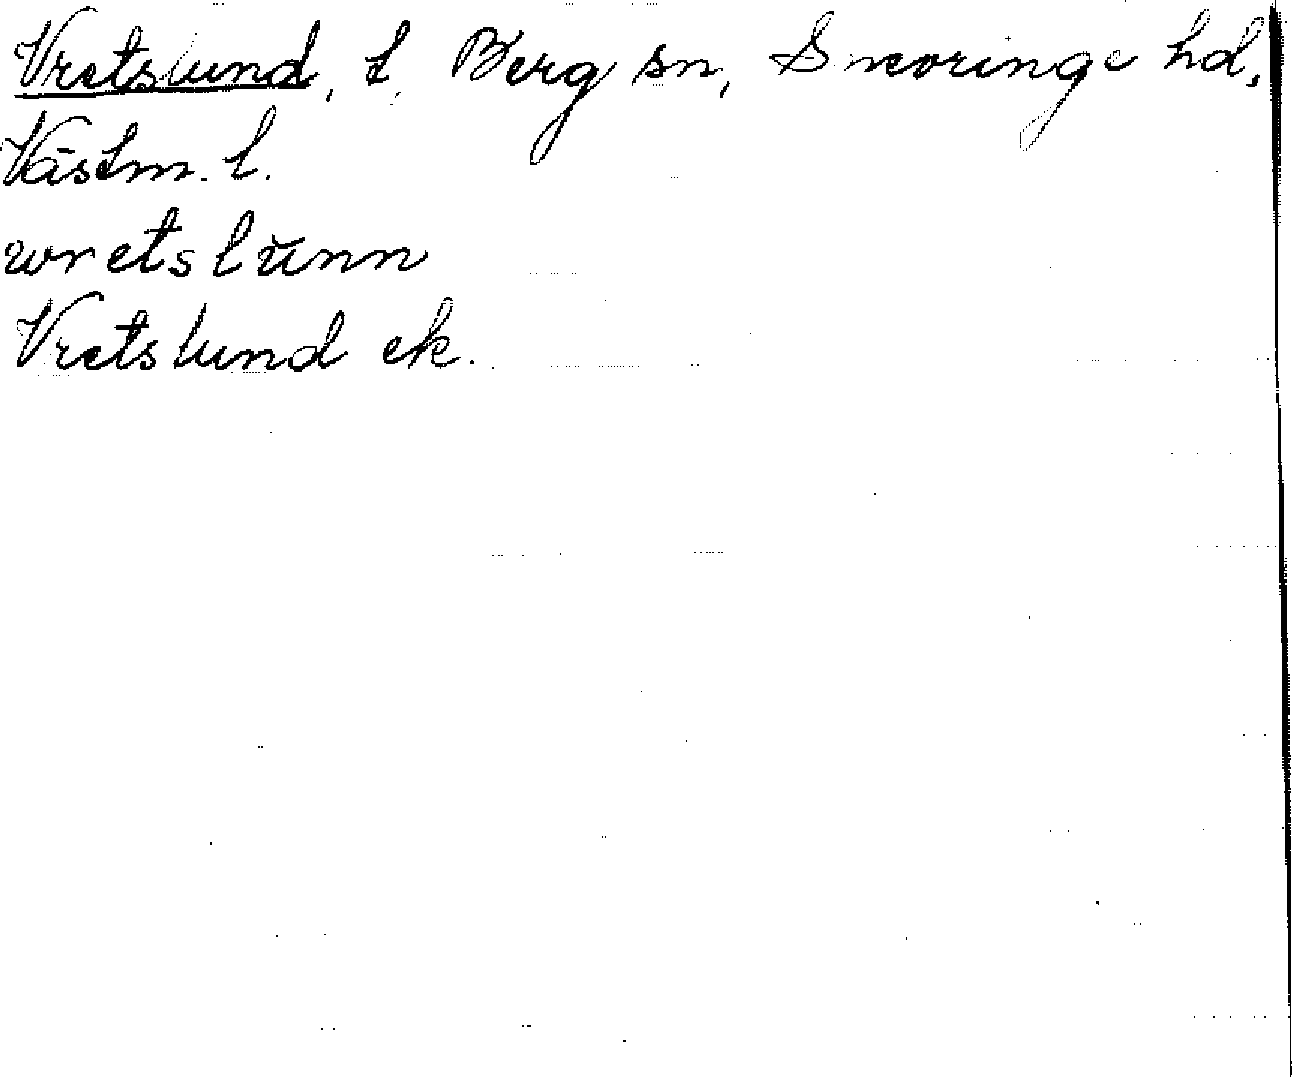 Vretslund, t. Berg sn, Snevringe hd,
Västm. l.
vretslŭnn
Vretslund ek.